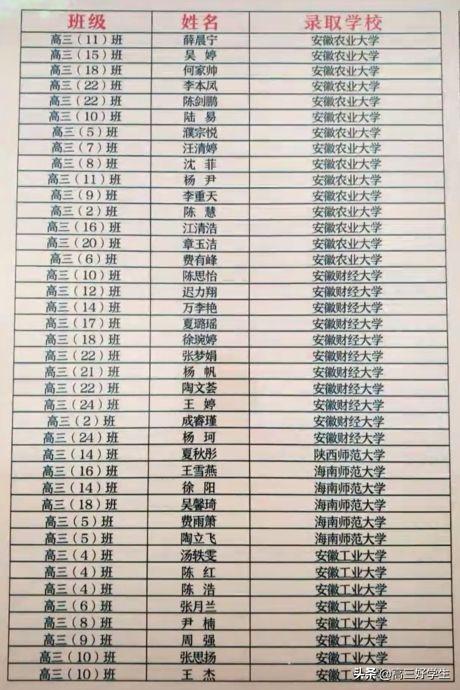 班级 姓名 录取学校
高三（11）班 薛晨宁 安徽农业大学
高三（15）班 吴 婷 安徽农业大学
高三（18）班 何家帅 安徽农业大学
高三（22）班 李本凤 安徽农业大学
高三（22）班 陈剑鹏 安徽农业大学
高三（10）班 陆 易 安徽农业大学
高三（5）班 濮宗悦 安徽农业大学
高三（7）班 汪清婷 安徽农业大学
高三（8）班 沈 菲 安徽农业大学
高三（11）班 杨 尹 安徽农业大学
高三（9）班 李重天 安徽农业大学
高三（2）班 陈 慧 安徽农业大学
高三（16）班 江清浩 安徽农业大学
高三（20）班 章玉洁 安徽农业大学
高三（6）班 费有峰 安徽农业大学
高三（10）班 陈思怡 安徽财经大学
高三（12）班 迟力翔 安徽财经大学
高三（14）班 万李艳 安徽财经大学
高三（17）班 夏璐瑶 安徽财经大学
高三（18）班 徐琬婷 安徽财经大学
高三（22）班 张梦娟 安徽财经大学
高三（21）班 杨 帆 安徽财经大学
高三（22）班 陶文荟 安徽财经大学
高三（24）班 王 婷 安徽财经大学
高三（2）班 成睿瑾 安徽财经大学
高三（24）班 杨 珂 安徽财经大学
高三（14）班 夏秋彤 陕西师范大学
高三（16）班 王雪燕 海南师范大学
高三（14）班 徐 阳 海南师范大学
高三（18）班 吴馨琦 海南师范大学
高三（5）班 费雨箫 海南师范大学
高三（5）班 陶立飞 海南师范大学
高三（4）班 汤轶雯 安徽工业大学
高三（4）班 陈 红 安徽工业大学
高三（4）班 陈 浩 安徽工业大学
高三（6）班 张月兰 安徽工业大学
高三（8）班 尹 楠 安徽工业大学
高三（9）班 周 强 安徽工业大学
高三（10）班 张思扬 安徽工业大学
高三（10）班 王 杰 安徽工业大学
头条 @高三好学生